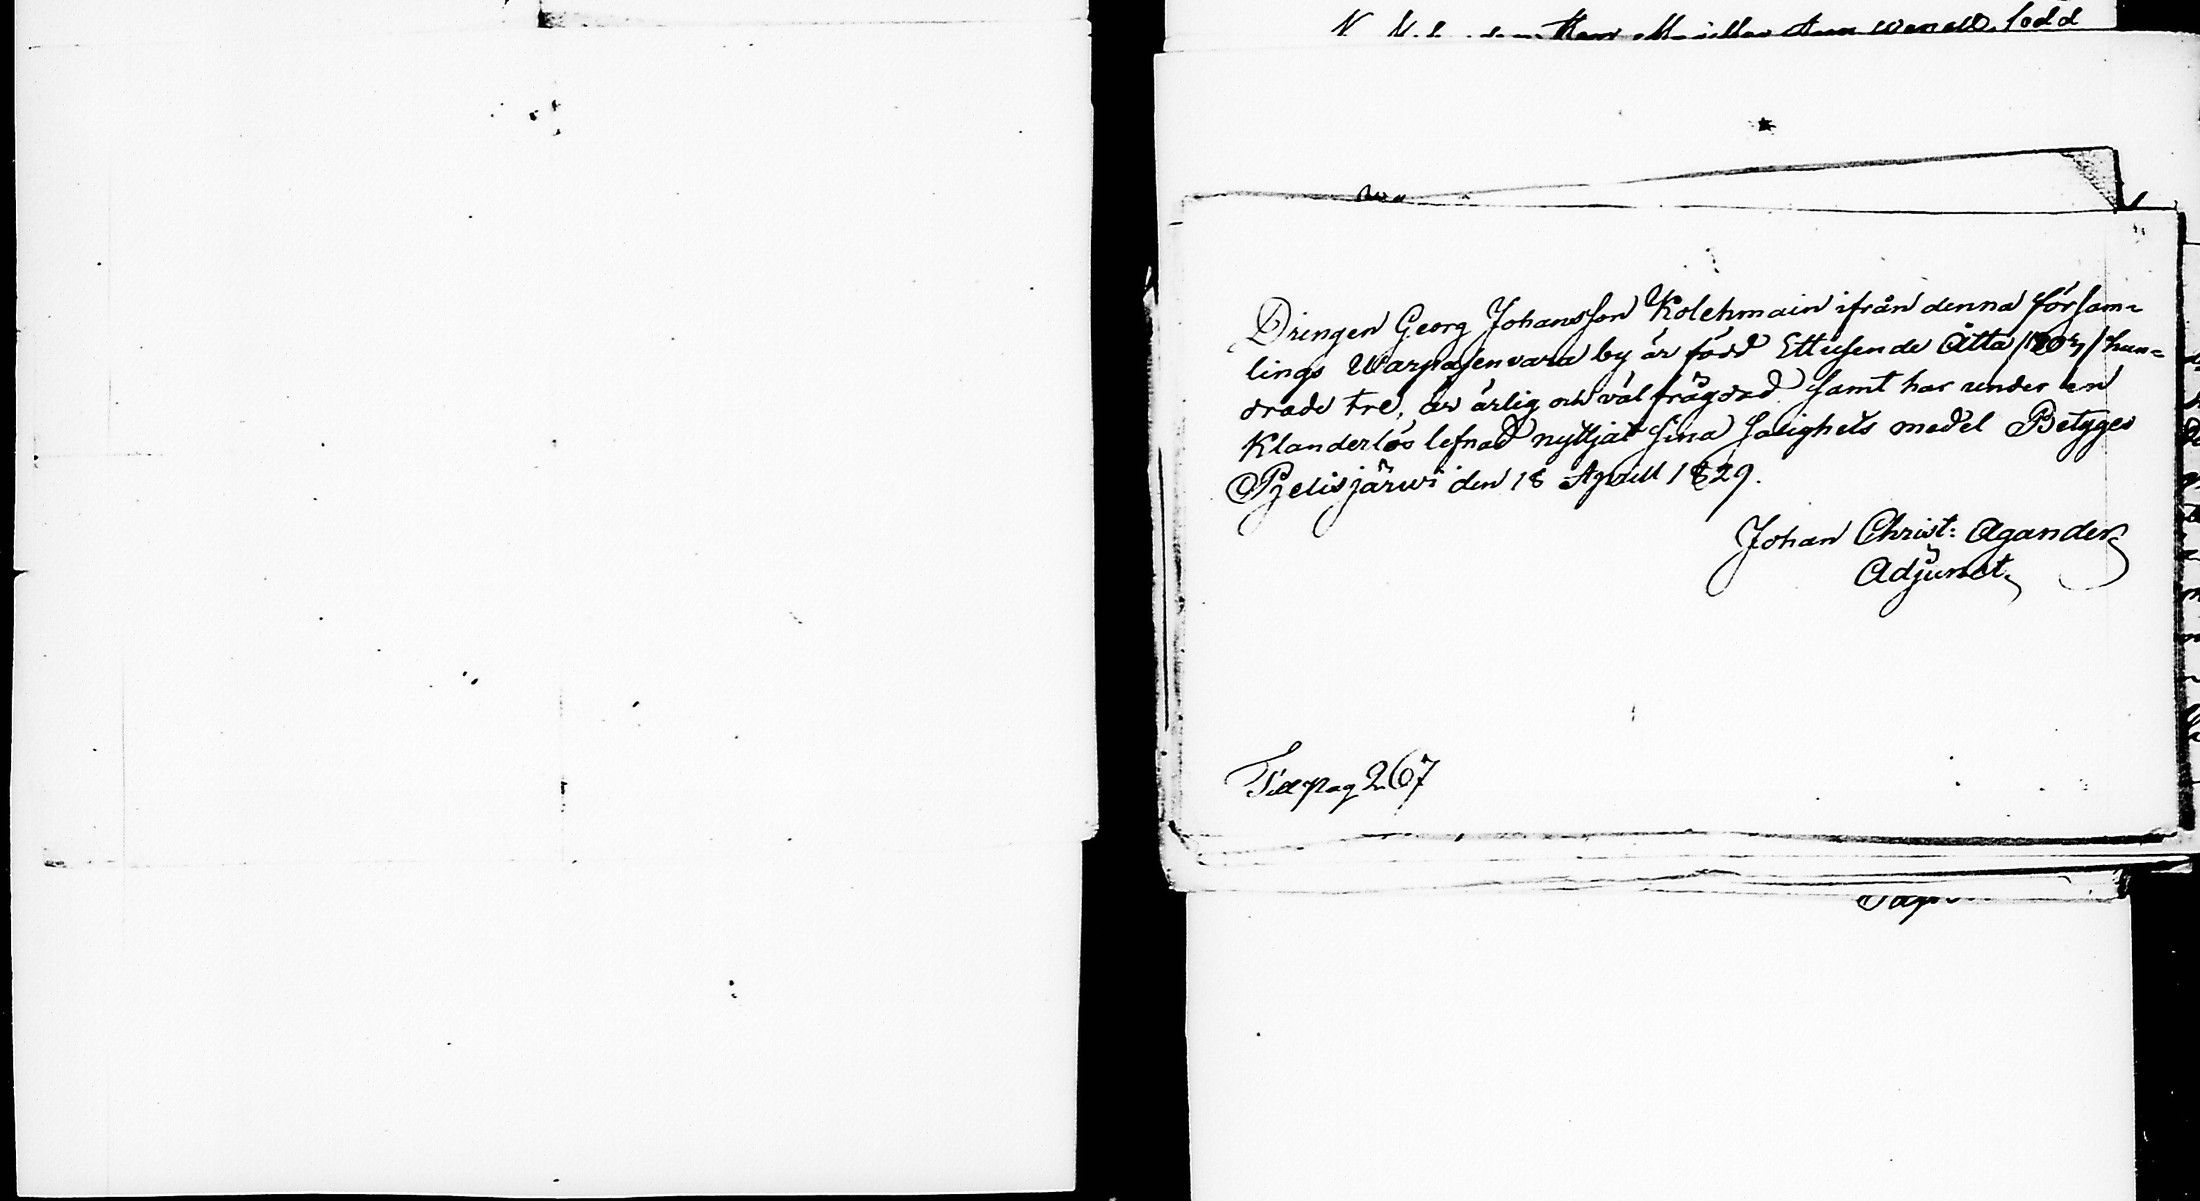 född
Drengen Georg Johansson Kolehmain ifrån denna försam=
lings Warpasenvara by är född Ettusende Åtta /1803/ hun=
drade tre, är ärlig och väl frägdad samt har under en
Klanderlös lefnad nyttjat sina salighets medel Betyges
Pjelisjärwi den 18 Aprill 1829.
Johan Christ: Agander
Adjunct.
Till pag 267